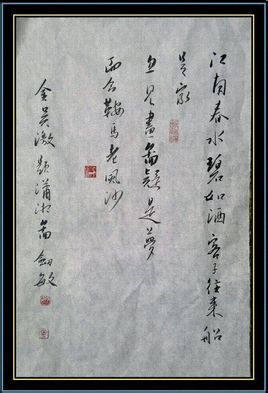 江南春水碧如酒客子往来船
是家
忽見畫啚疑是夢
而今鞍馬老風沙
金吳激題瀟湘啚釼敏